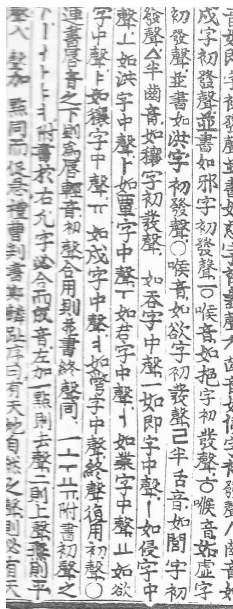 音如即字初發聲並書如慈字初發聲ㅊ齒音如侵字初發聲ㅅ齒音如
戌字初發聲並書如邪字初發聲ㆆ喉音如挹字初發聲ㅎ喉音如虛字
初發聲並書如洪字初發聲ㅇ喉音如欲字初發聲ㄹ半舌音如閭字初
發聲ㅿ半齒音如穰字初發聲ㆍ如呑字中聲ㅡ如即字中聲ㅣ如侵字中
聲ㅗ如洪字中聲ㅏ如覃字中聲ㅜ如君字中聲ㅓ如業字中聲ㅛ如欲
字中聲ㅑ如穰字中聲ㅠ如戌字中聲ㅕ如彆字中聲終聲復用初聲ㅇ
連書唇音之下則爲唇輕音初聲合用則並書終聲同ㆍㅡㅗㅜㅛㅠ附書初聲之
下ㅣㅏㅓㅑㅕ附書於右凡字必合而成音左加一點則去聲二則上聲無則平
聲入聲加點同而促急禮曹判書鄭麟趾序曰有天地自然之聲則必有天